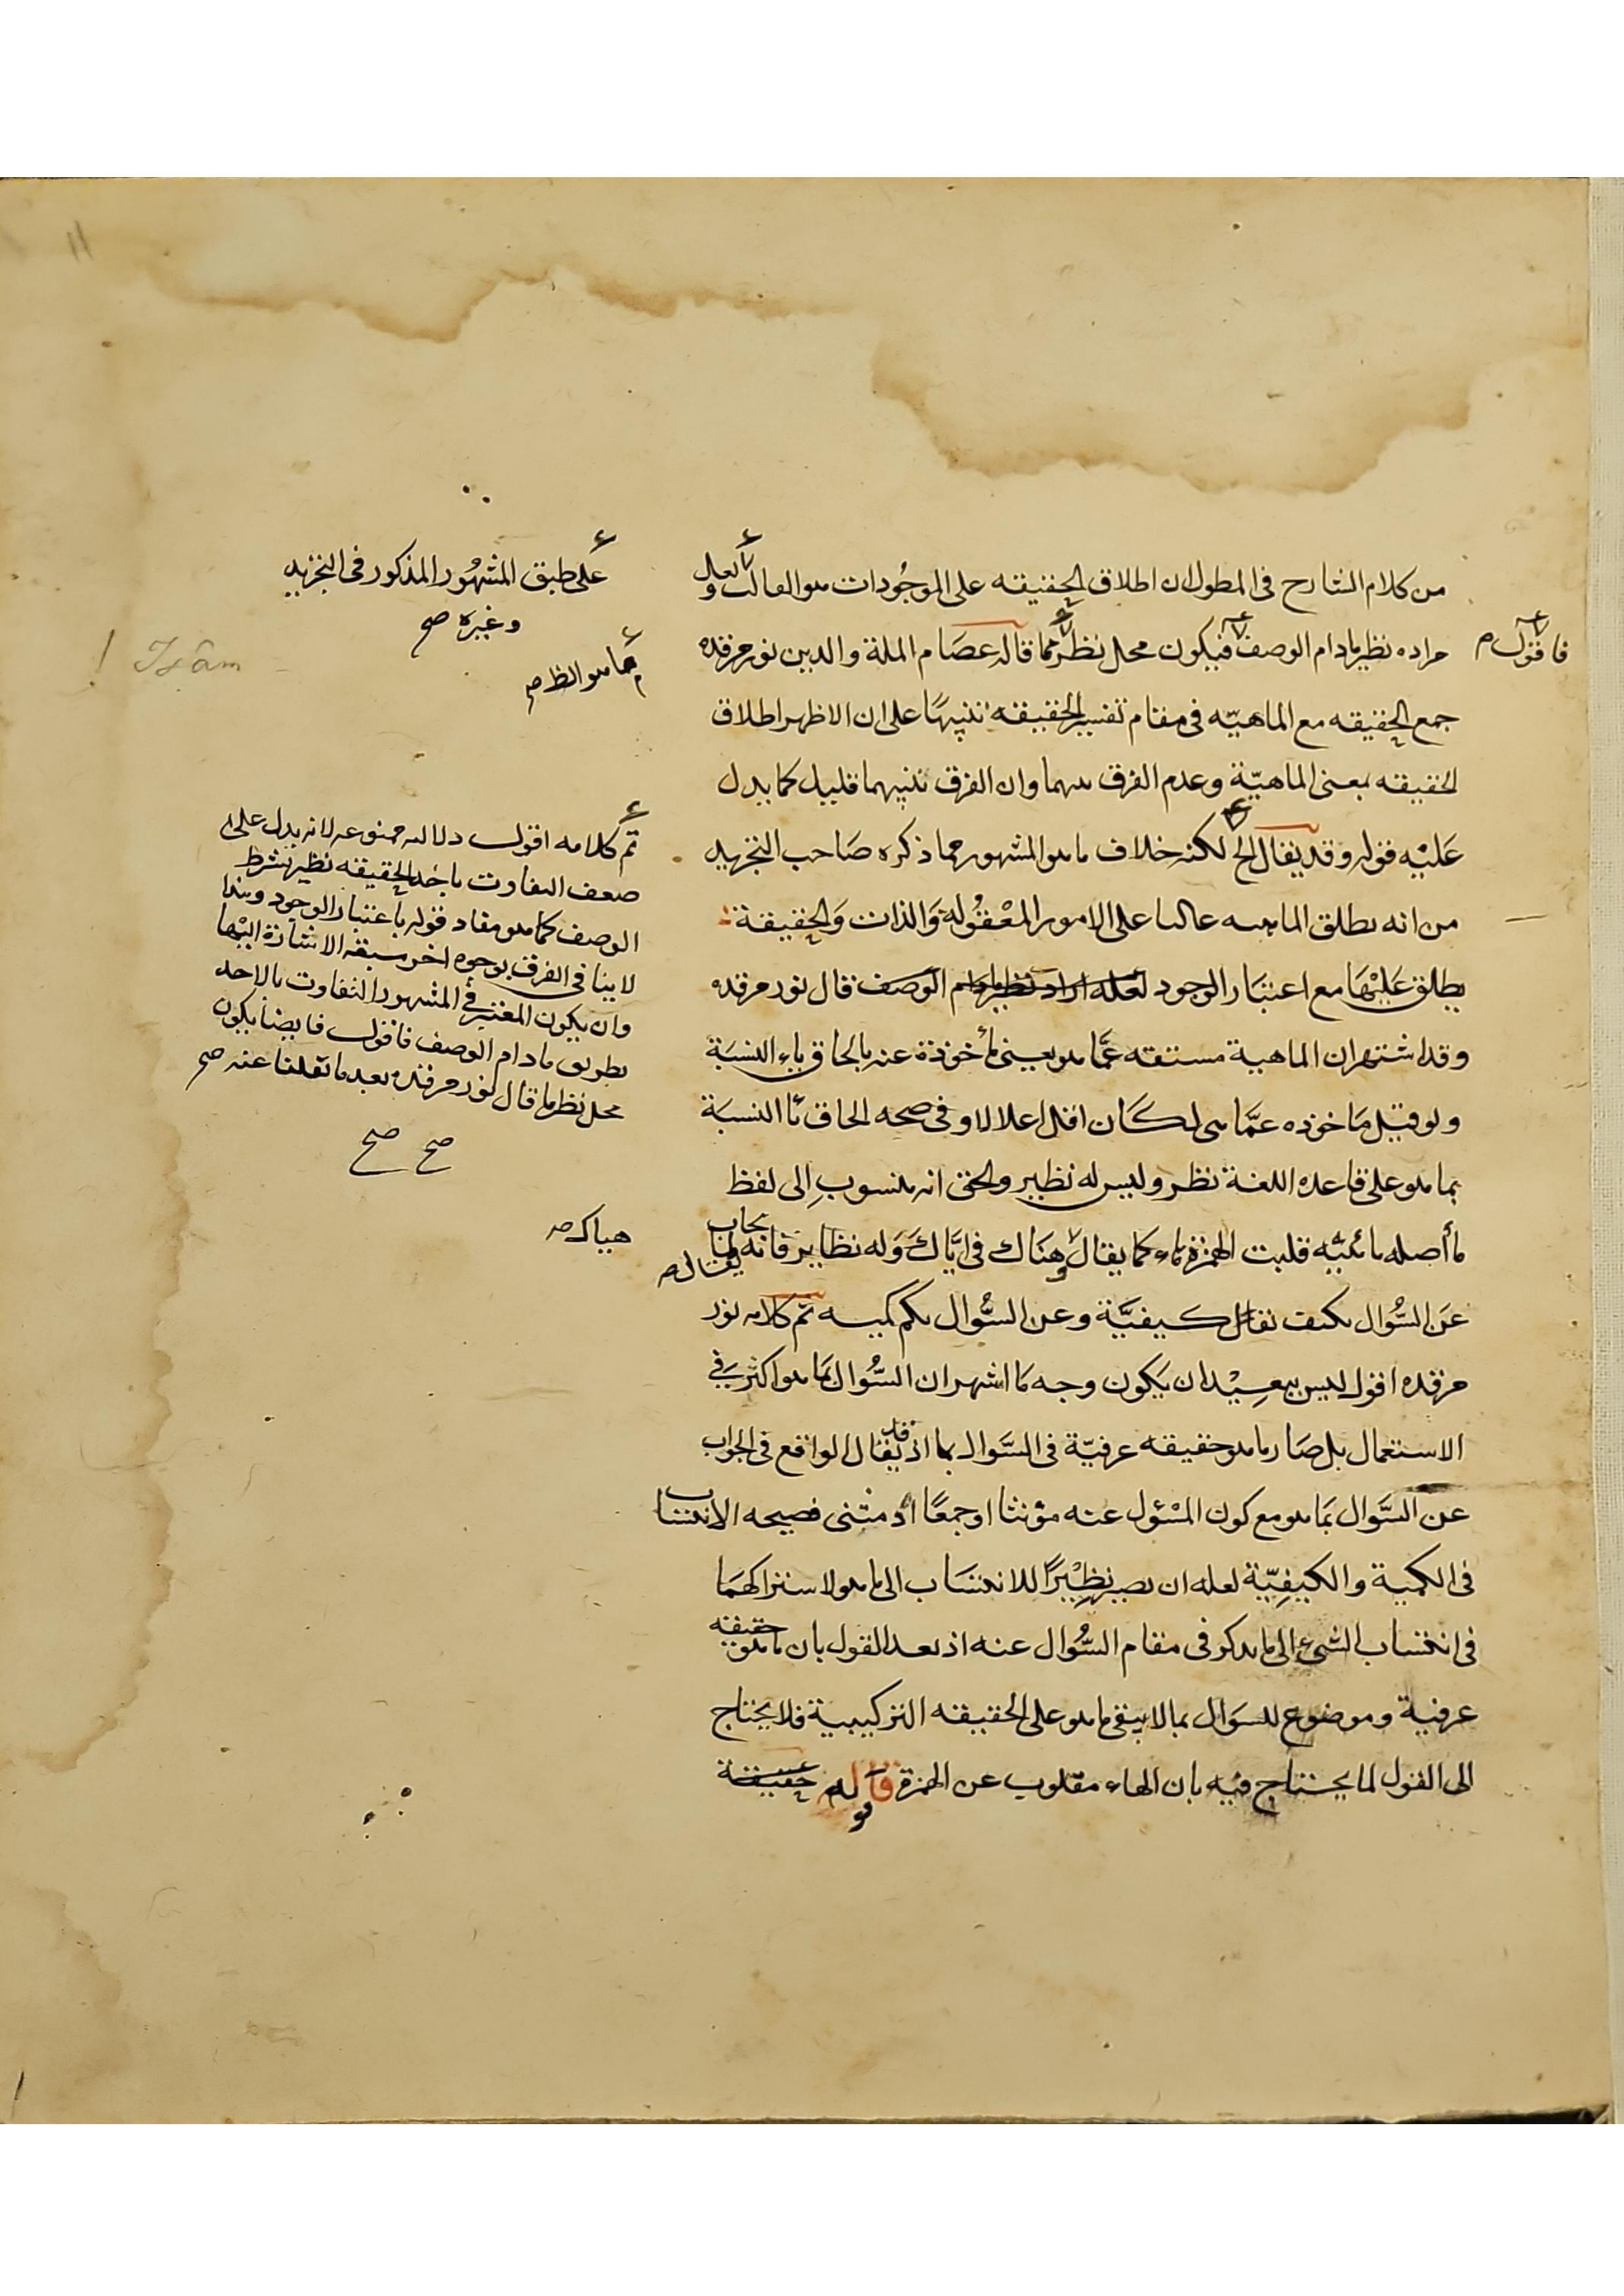 من كلام الشارح فى المطول ان اطلاق الحقيقه على الموجودات هو الغالب ولعل
مراده نظير مادام الوصف فيكون محل نظر مما قاله عصام الملة والدين نور مرقده
جمع الحقيقه مع الماهيّه فى مقام تفسير الحقيقه تنبيهًا على ان الاظهر اطلاق
الحقيقه بمعنى الماهيّة وعدم الفرق بينهما وان الفرق بينهما قليل كما يدل
عَليْه قوله وقد يقال الخ لكنه خلاف ما هو المشهور مما ذكره صَاحب التجريد
من انه يطلق الماهيه غالبا على الامور المعْقُوله وَالذات وَالحقيقة
يطلق عَليْهَا مع اعتبَار الوجود لعله اراد نظير مادام الوَصف قال نور مرقده
وقد اشتهر ان الماهية مشتقه عمَّا هو يعنى مأخوذة عنه بالحاق ياء النسبَة
ولو قيل مَاخوذه عمَّا هى لكَان اقل اعلالا وفى صحه الحاق يَا النسبَة
بما هو على قاعده اللغة نظر وليس له نظير والحق انه منسوب إلى لفظ
ما أصله مائيّه قلبت الهمزة هاء كما يقال وهنَاك فى ايَّاك وَله نظاير فانه لما يجاب
عَن السُّوال بكيف يقال كيفيَّة وعن السُّوال بكم كميه تم كلامه نور
مرقده اقول ليس ببعيد ان يكون وجه مَا اشهر ان السُّوال بمَا هو اكثر فى
الاستعمال بل صَار ما هو حقيقه عرفيّة فى السَّوال بما اذ قد يقال الواقع فى الجواب
عن السَّوال بمَا هو مع كون المسْؤل عنه مؤنثا او جمعًا او مثنى فصيحه الانتساب
فى الكمية والكيفِيّة لعله ان يصير نظِيْرًا للانتسَاب الى ما هو لاشتراكهمَا
فى انتساب الشئ الى ما يذكر فى مقام السُّوال عنه اذ بعد القول بان ما هو حقيقه
عرفية وموضوع للسوَال بما لا يبقى ما هو على الحقيقه التركيبية فلا يحتاج
الى القول لما يحتاج فيه بان الهاء مقلوب عن الهمزة قوله حقيقة
فاقول
على طبق المشهُور المذكور فى التجريد
وغيره صح
كما هو الظ
Isâm
تم كلامه اقول دلالته ممنوعه لانه يدل على
ضعف التفاوت باخذ الحقيقه نظير بشرط
الوصف كما هو مفاد قوله باعتبار الوجود وهذا
لا ينافى الفرق بوجوه اخر سبقه الاشارة اليْها
وان يكون المعتبر فى المشهور التفاوت بالاخذ
بطريق مادام الوصف فاقول فايضا يكون
محل نظر ما قال نور مرقده بعد ما نقلنا عنه صح
صح صح
هياك
يقال
11